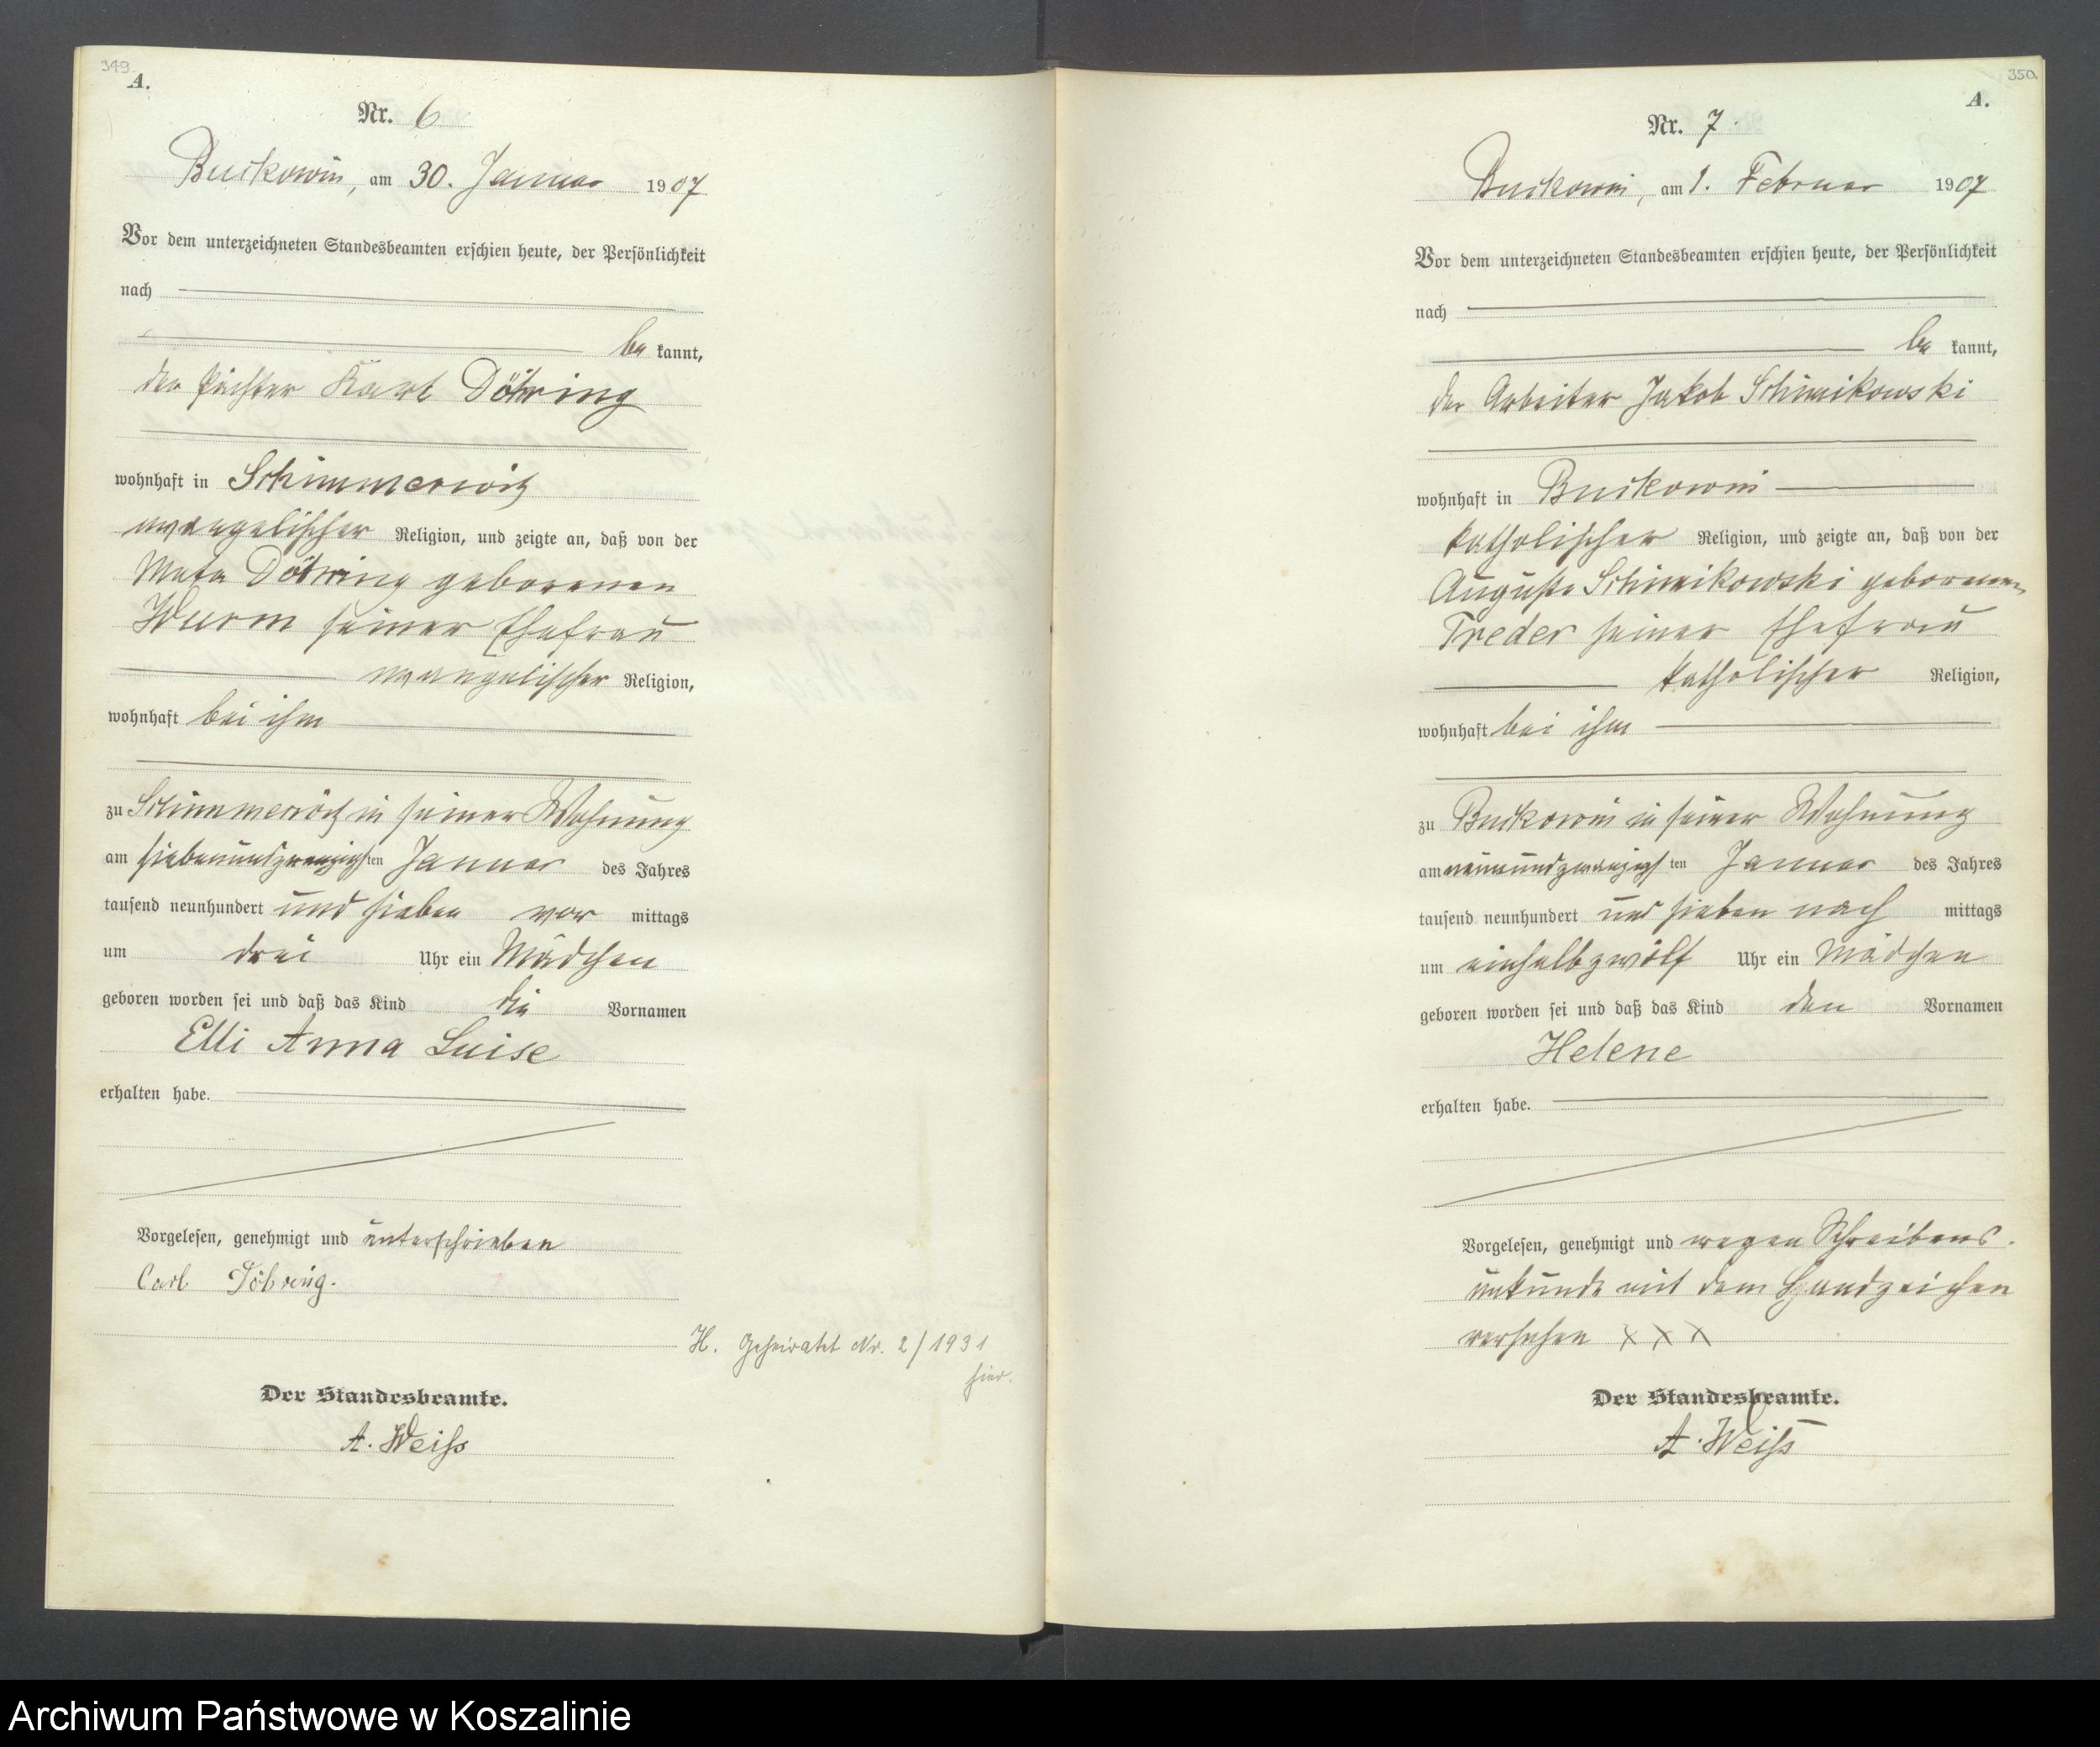 349
A.
Nr. 6
Buckowin, am 30. Januar 1907
Vor dem unterzeichneten Standesbeamten erschien heute, der Persönlichkeit
nach
be kannt,
der Pächter Karl Döhring
wohnhaft in Schimmerwitz
evangelischer Religion, und zeigte an, daß von der
Meta Döhring geborenen
Wurm seiner Ehefrau
evangelischer Religion,
wohnhaft bei ihm
zu Schimmerwitz in seiner Wohnung
am siebenundzwanzigsten Januar des Jahres
tausend neunhundert und sieben vor mittags
um drei Uhr ein Mädchen
geboren worden sei und daß das Kind die Vornamen
Elli Anna Luise
erhalten habe.
Vorgelesen, genehmigt und unterschrieben
Carl Döhring.
H. Geheiratet Nr. 2/1931
hier.
Der Standesbeamte.
A. Weiß
350
A.
Nr. 7.
Buckowin, am 1. Februar 1907
Vor dem unterzeichneten Standesbeamten erschien heute, der Persönlichkeit
nach
be kannt,
der Arbeiter Jakob Schimikowski
wohnhaft in Buckowin
katholischer Religion, und zeigte an, daß von der
Auguste Schimikowski geborenen
Treder seiner Ehefrau
katholischer Religion,
wohnhaft bei ihm
zu Buckowin in seiner Wohnung
am neunundzwanzigsten Januar des Jahres
tausend neunhundert und sieben nach mittags
um einhalbzwölf Uhr ein Mädchen
geboren worden sei und daß das Kind den Vornamen
Helene
erhalten habe.
Vorgelesen, genehmigt und wegen Schreibens-
unkunde mit dem Handzeichen
versehen X X X
Der Standesbeamte.
A. Weiß
Archiwum Państwowe w Koszalinie